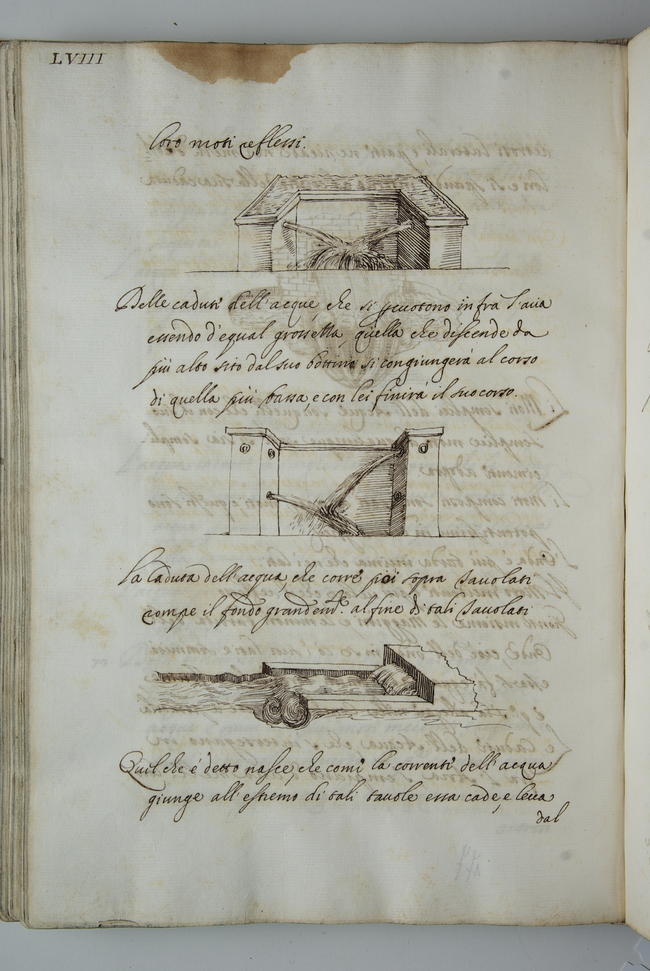 LVIII
loro moti reflessi.
Delle cadute dell'acque, che si percotono infra l'aria
essendo d'egual grossezza, quella che discende da
più alto sito dal suo bottino si congiungerà al corso
di quella più bassa, e con lei finirà il suo corso.
La caduta dell'acqua, che corre poi sopra tavolati
rompe il fondo grandem.te al fine di tali tavolati
Quel che è detto nasce, che come la corrente dell'acqua
giunge all'estremo di tali tavole essa cade, e leva
dal